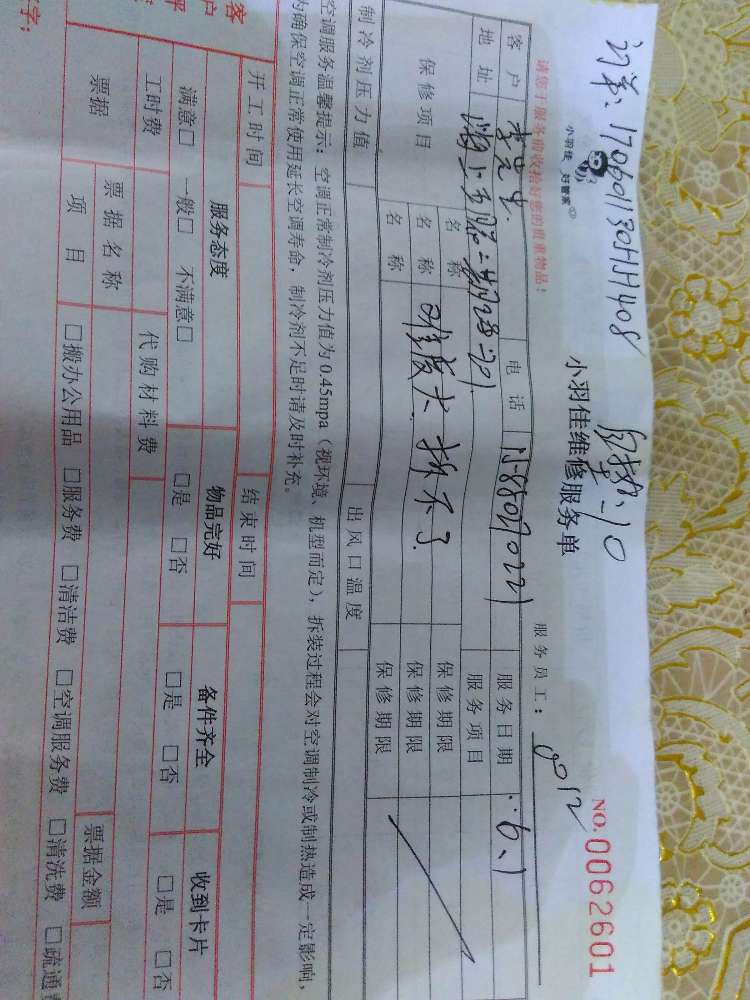 订单：170601130HH408
小羽佳 好管家
小羽佳维修服务单
NO.0062601
请您于服务前收拾好您的贵重物品！
服务员工：0012
客户 李先生 电话 服务日期 6.1
地址 服务项目
保修项目 名称 保修期限
名称 保修期限
名称 保修期限
制冷剂压力值 出风口温度
空调服务温馨提示：空调正常制冷剂压力值为0.45mpa（视环境、机型而定），拆装过程会对空调制冷或制热造成一定影响，
为确保空调正常使用延长空调寿命，制冷剂不足时请及时补充。
开工时间 结束时间
服务态度 物品完好 备件齐全 收到卡片
满意□ 一般□ 不满意□ □是 □否 □是 □否 □是 □否
工时费 代购材料费
票据 票据名称 票据金额
项目 □搬办公用品 □服务费 □清洁费 □空调服务费 □清洗费 □疏通
客
户
字：